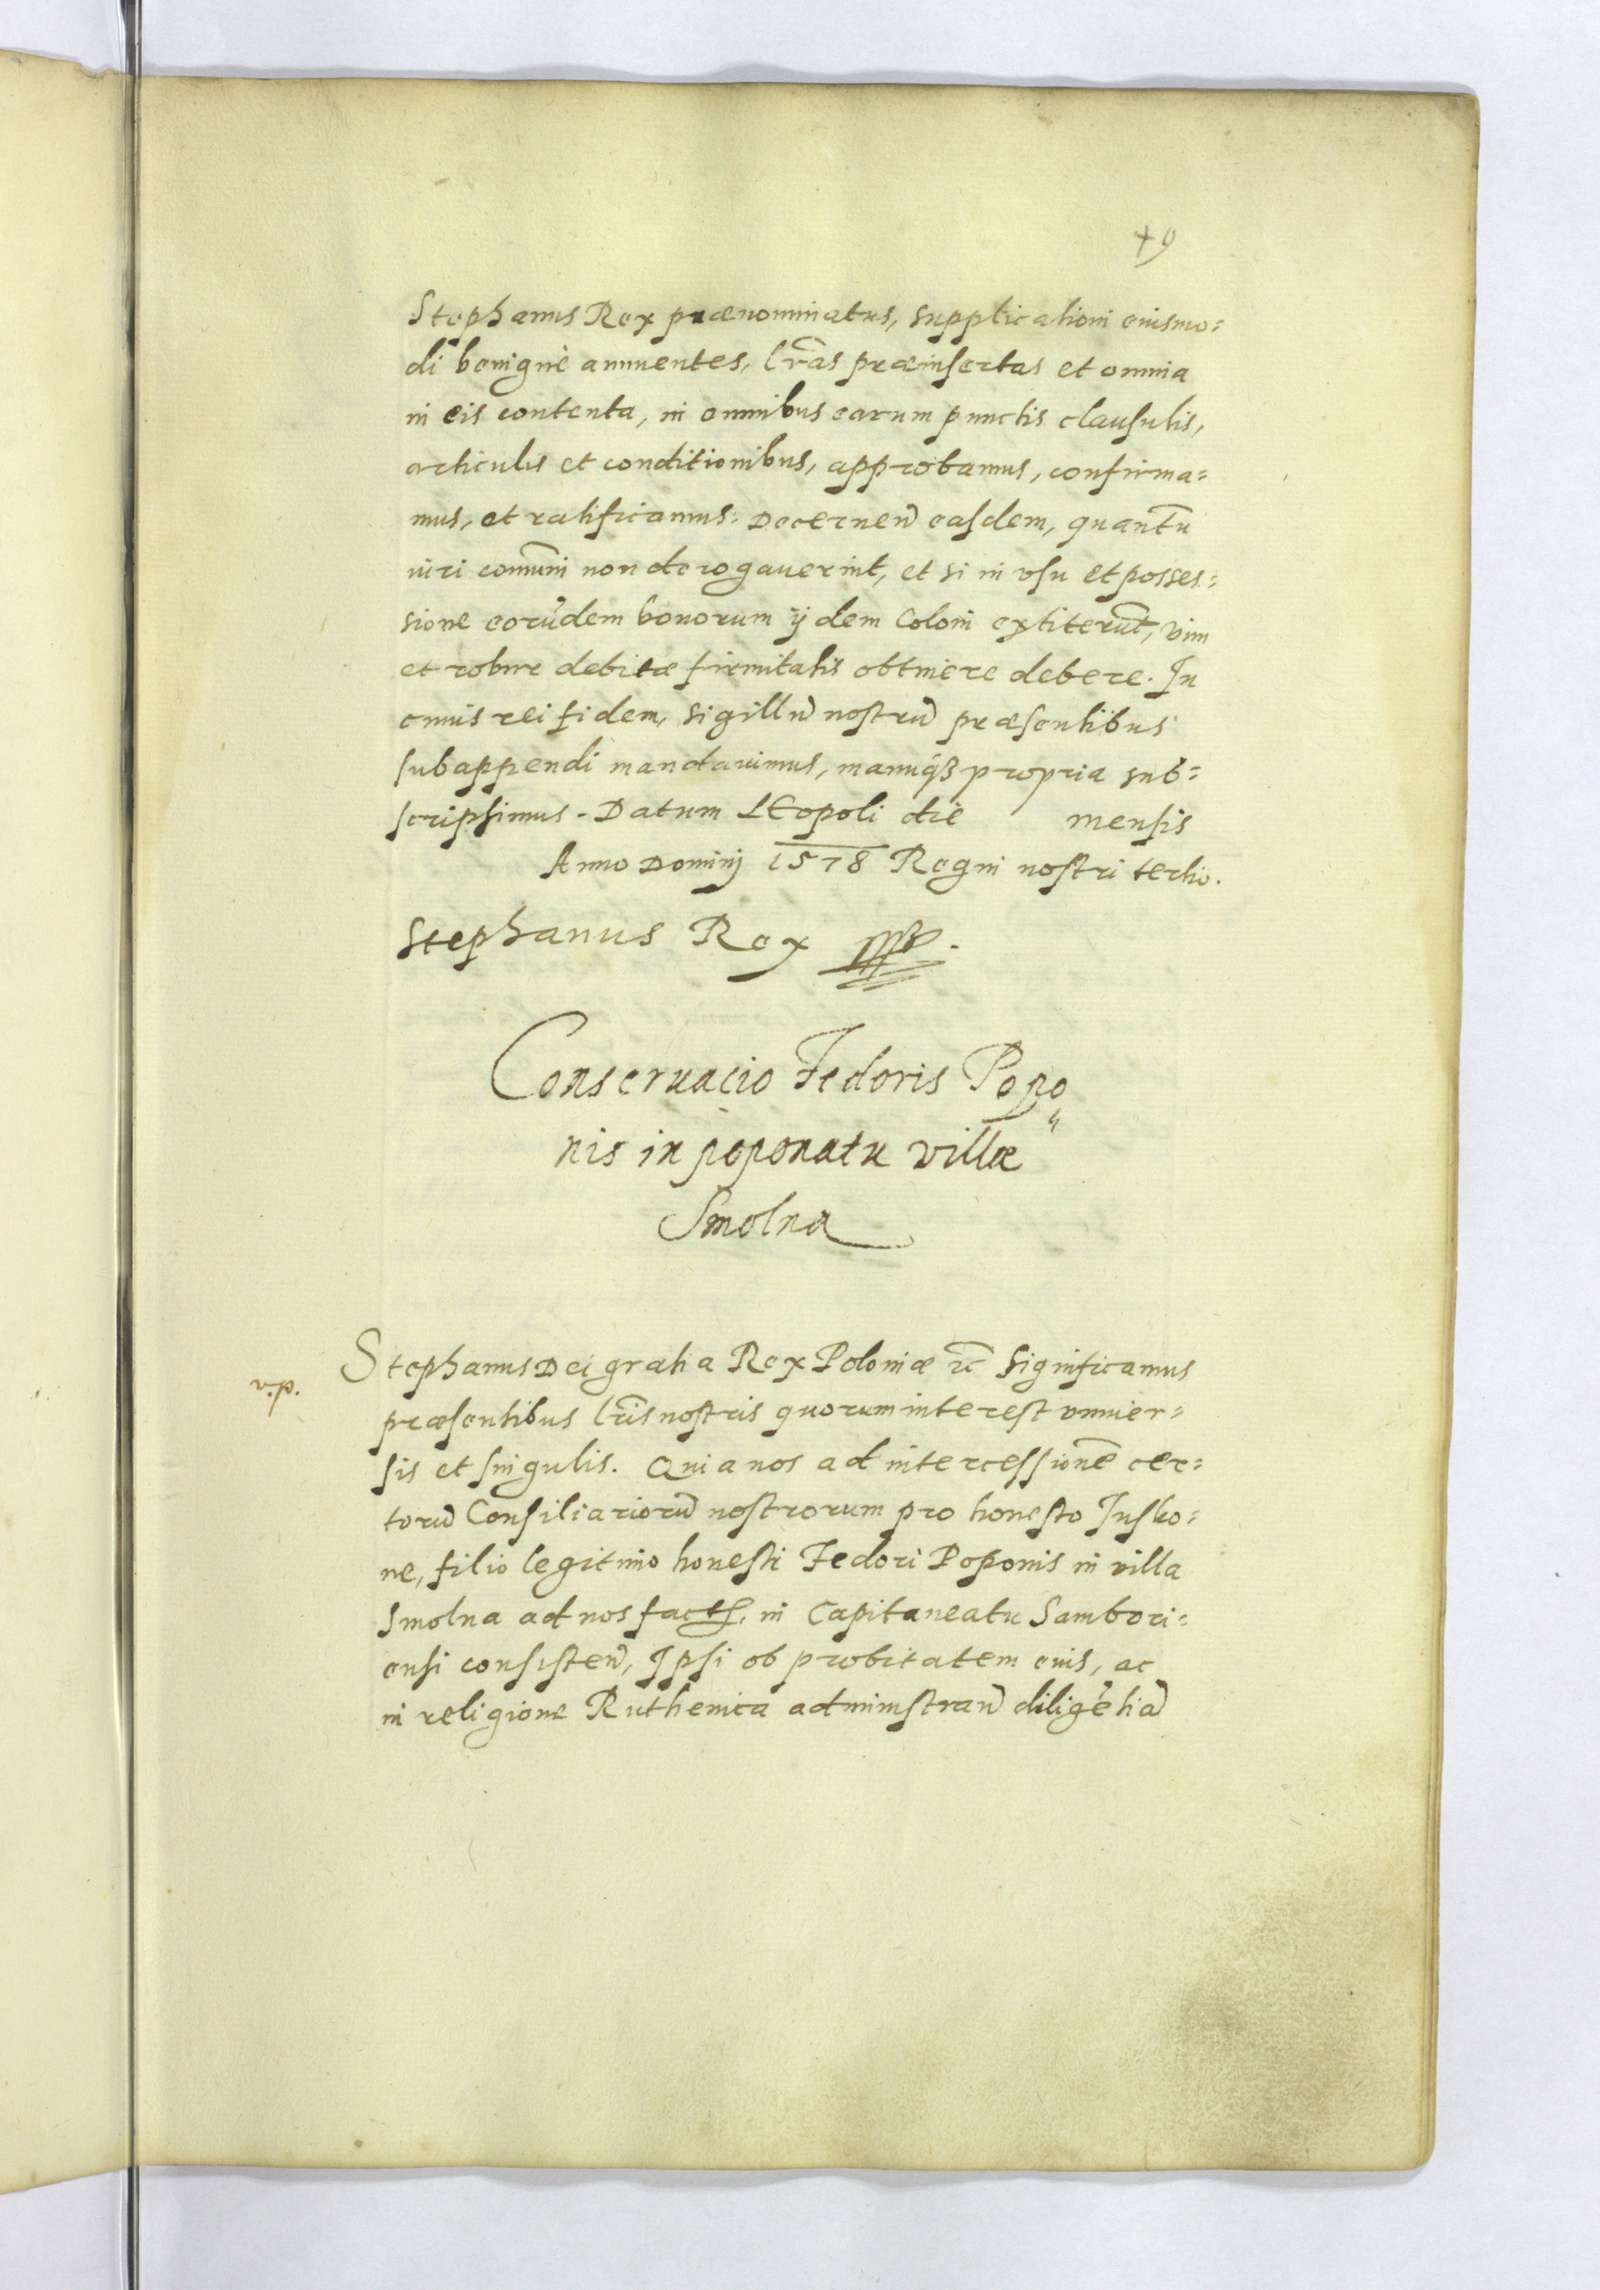 49
Stephanus Rex prænominatus, supplicationi eiusmo=
di benignè annuentes, lr̃as præinsertas et omnia
in eis contenta, in omnibus earum punctis clausulis,
articulis et conditionibus, approbamus, confirma=
mus, et ratificamus. Decernen̄ easdem, quantū
iuri com̄uni non derogauerint, et si in vsu et posses=
sione eorūdem bonorum ijdem Coloni extiterūt, vim
et robur debitæ firmitatis obtinere debere. In
cuius rei fidem, sigillū nostrū præsentibus
subappendi mandauimus, manuq́ꝫ propria sub=
scripsimus. Datum LEopoli die mensis
Anno Dominij 1578 Regni nostri tertio.
Stephanus Rex
Conseruacio Fedoris Popo"
nis in poponatu villæ
Smolna
Stephanus Dei gratia Rex Poloniæ ꝛc̄ Significamus
v.p.
præsentibus lr̃is nostris quorum interest vniuer=
sis et singulis. Quia nos ad intercessionē cer=
torū Consiliariorū nostrorum pro honesto Jusko=
ne, filio legitimo honesti Fedori Poponis in villa
Smolna ad nos fact. in Capitaneatu Sambori=
ensi consisten̄, Ipsi ob probitatem eius, ac
in religione Ruthenica administran̄ diligētiā